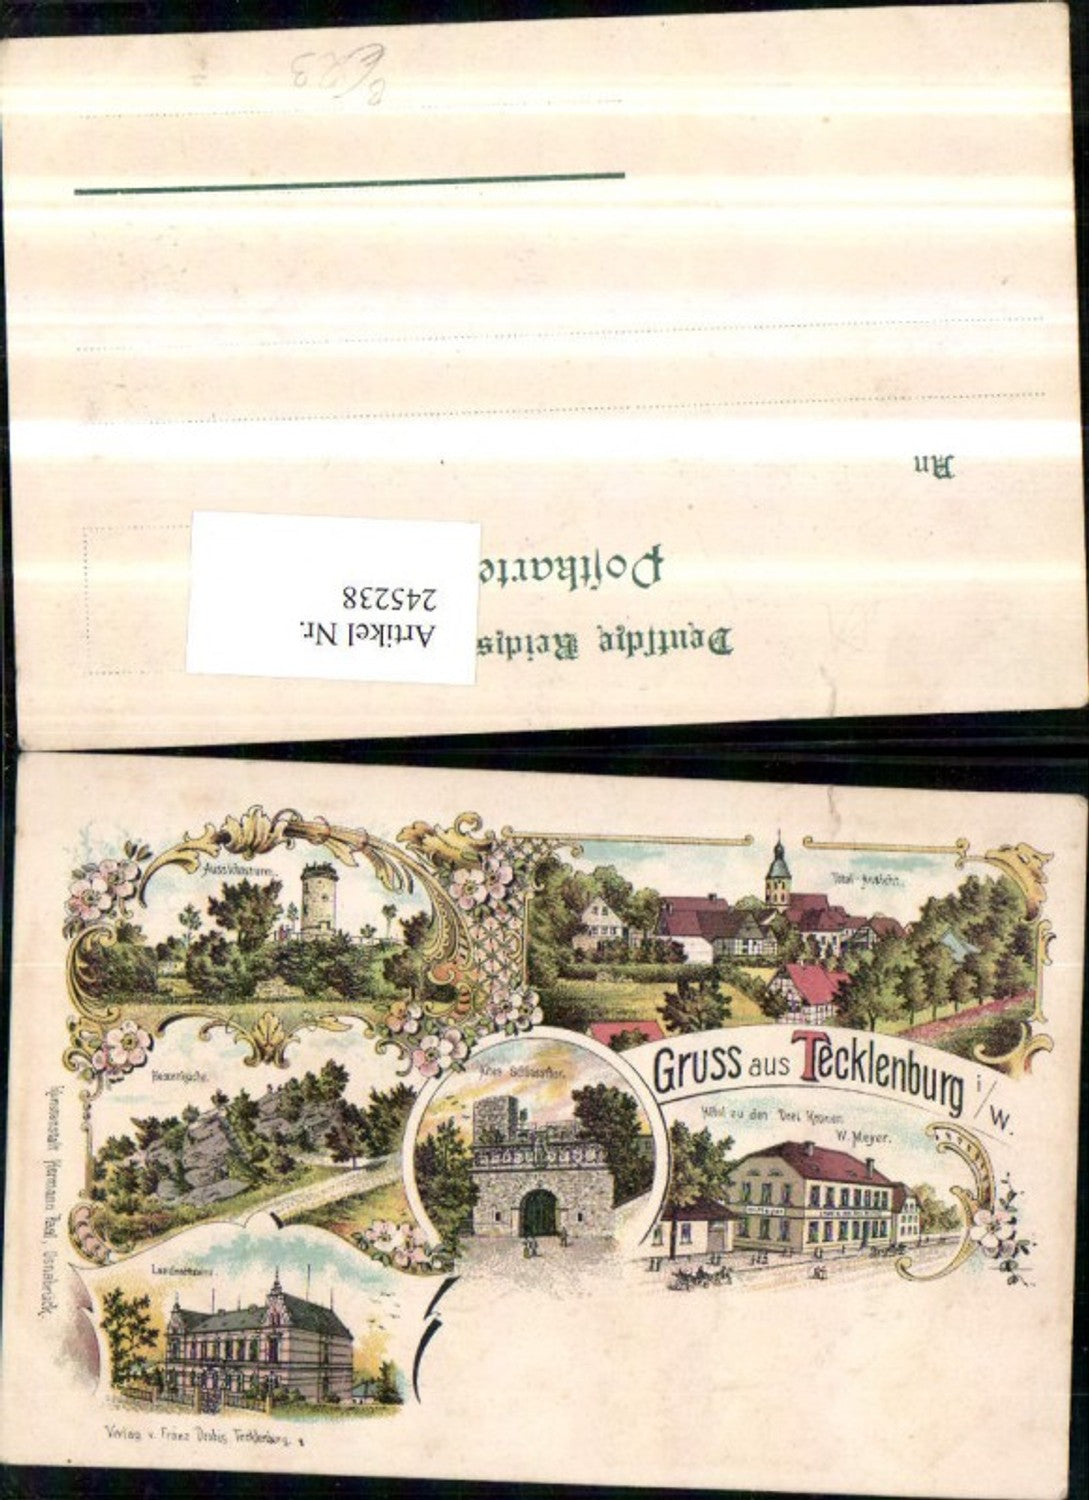 Deutsche Reichs
Postkarte
An
Artikel Nr.
245238
Aussichtsturm.
Total-Ansicht.
Gruss aus Tecklenburg i/W.
Hexenküche.
Altes Schlosstor.
Hôtel zu den Drei Kronen.
W. Meyer.
Landratsamt
Kunstanstalt Hermann Rasl, Osnabrück.
Verlag v. Franz Drobis Tecklenburg.